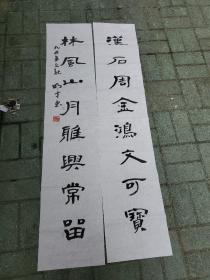 漢石周金鴻文可寶
林風山月雅興常留